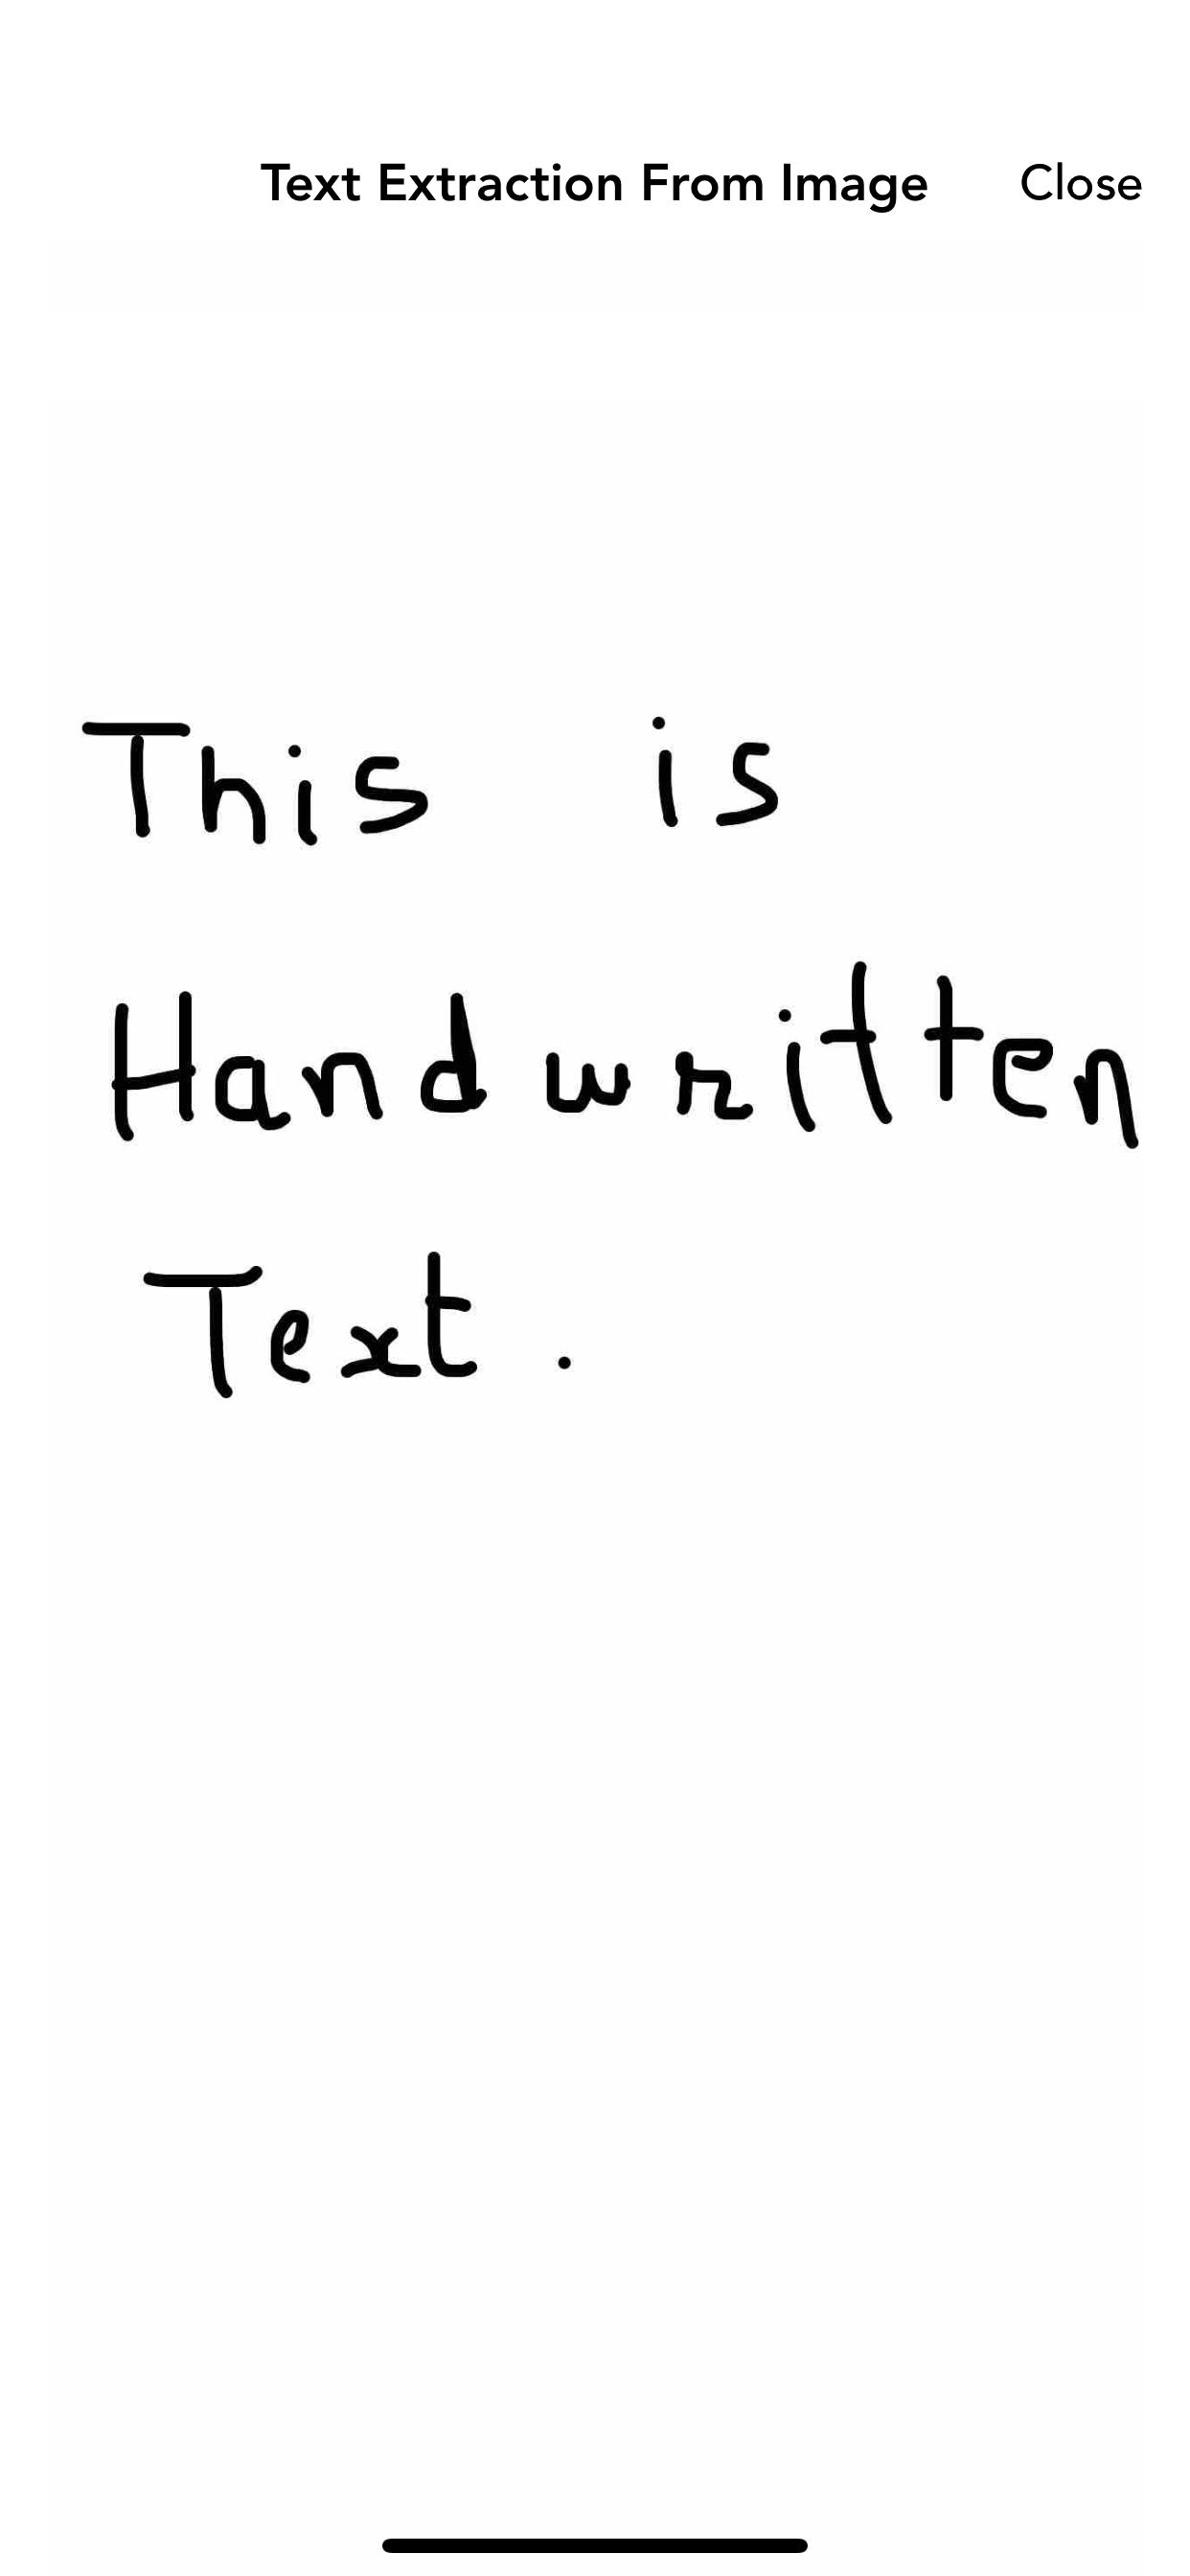 Text Extraction From Image Close
This is
Handwritten
Text.